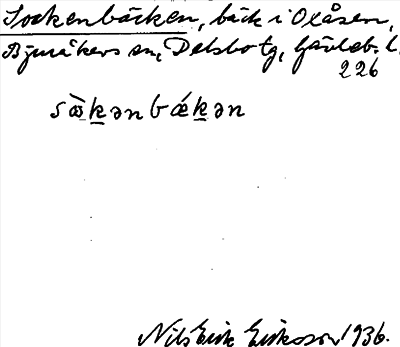 Sockenbäcken, bäck i Olåsen,
Bjuråkers sn, Delsbo tg, Gävleb. l.
226
sὰkənbǽkən
Nils Erik Eriksson 1936.